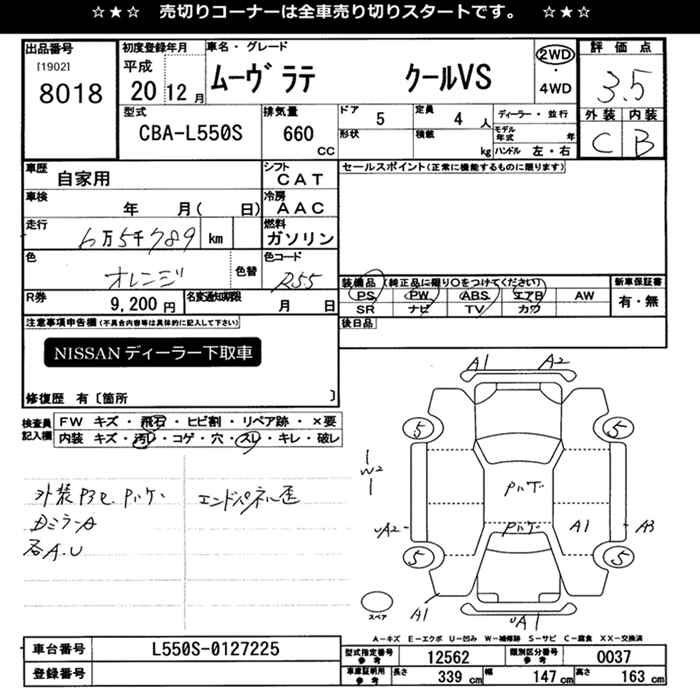 ☆★☆ 売切りコーナーは全車売り切りスタートです。 ☆★☆
出品番号
[1902]
8018
初度登録年月
平成
20 12 月
車名・グレード
ムーヴ ラテ クールVS
2WD
・
4WD
評価点
3.5
外装 内装
C B
型式
CBA-L550S
排気量
660 CC
ドア 5
定員 4 人
形状
積載 kg
ディーラー・並行
モデル年式 年
ハンドル 左・右
車歴
自家用
シフト
CAT
セールスポイント(正常に機能するものに限ります)
車検
年 月( 日)
冷房
AAC
走行
6万5千789 km
燃料
ガソリン
色
オレンジ
色替
色コード
R55
装備品 (純正品に限り○をつけてください)
PS PW ABS エアB AW
SR ナビ TV カワ
新車保証書
有・無
R券
9,200 円
名変通知期限
月 日
後日品
注意事項申告欄(不具合内容等は具体的に記入して下さい)
NISSAN ディーラー下取車
修復歴 有〔箇所 〕
検査員記入欄
FW キズ・飛石・ヒビ割・リペア跡・×要
内装 キズ・汚レ・コゲ・穴・スレ・キレ・破レ
外装 P3セ Pハゲ・
DミラーA
各A.U
エンドパネル歪
A1 A2
5 5
W2
Pハゲ
uA2 Pハゲ A1 A3
5 5
A1 uA1
スペア
A-キズ E-エクボ U-凹み W-補修跡 S-サビ C-腐食 XX-交換済
車台番号 L550S-0127225
登録番号
型式指定番号参考 12562
類別区分番号参考 0037
車庫証明用参考 長さ 339 cm 幅 147 cm 高さ 163 cm